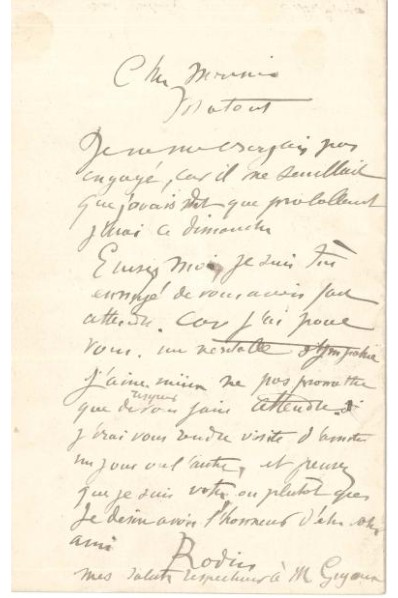 Cher Monsieur
Je ne me croyais pas
engagé, car il me semblait
que j'avais dit que probablement
j'irai ce dimanche
Excusez moi, je suis très
ennuyé de vous avoir fait
attendre. Car j'ai pour
vous. une véritable sympathie
J'aime mieux ne pas promettre
que de vous faire attendre. si
j'irai vous rendre visite
un jour ou l'autre, et pensez
que je suis votre ou plutôt que
je désire avoir l'honneur d'être votre
ami
Rodin
mes saluts respectueux à M